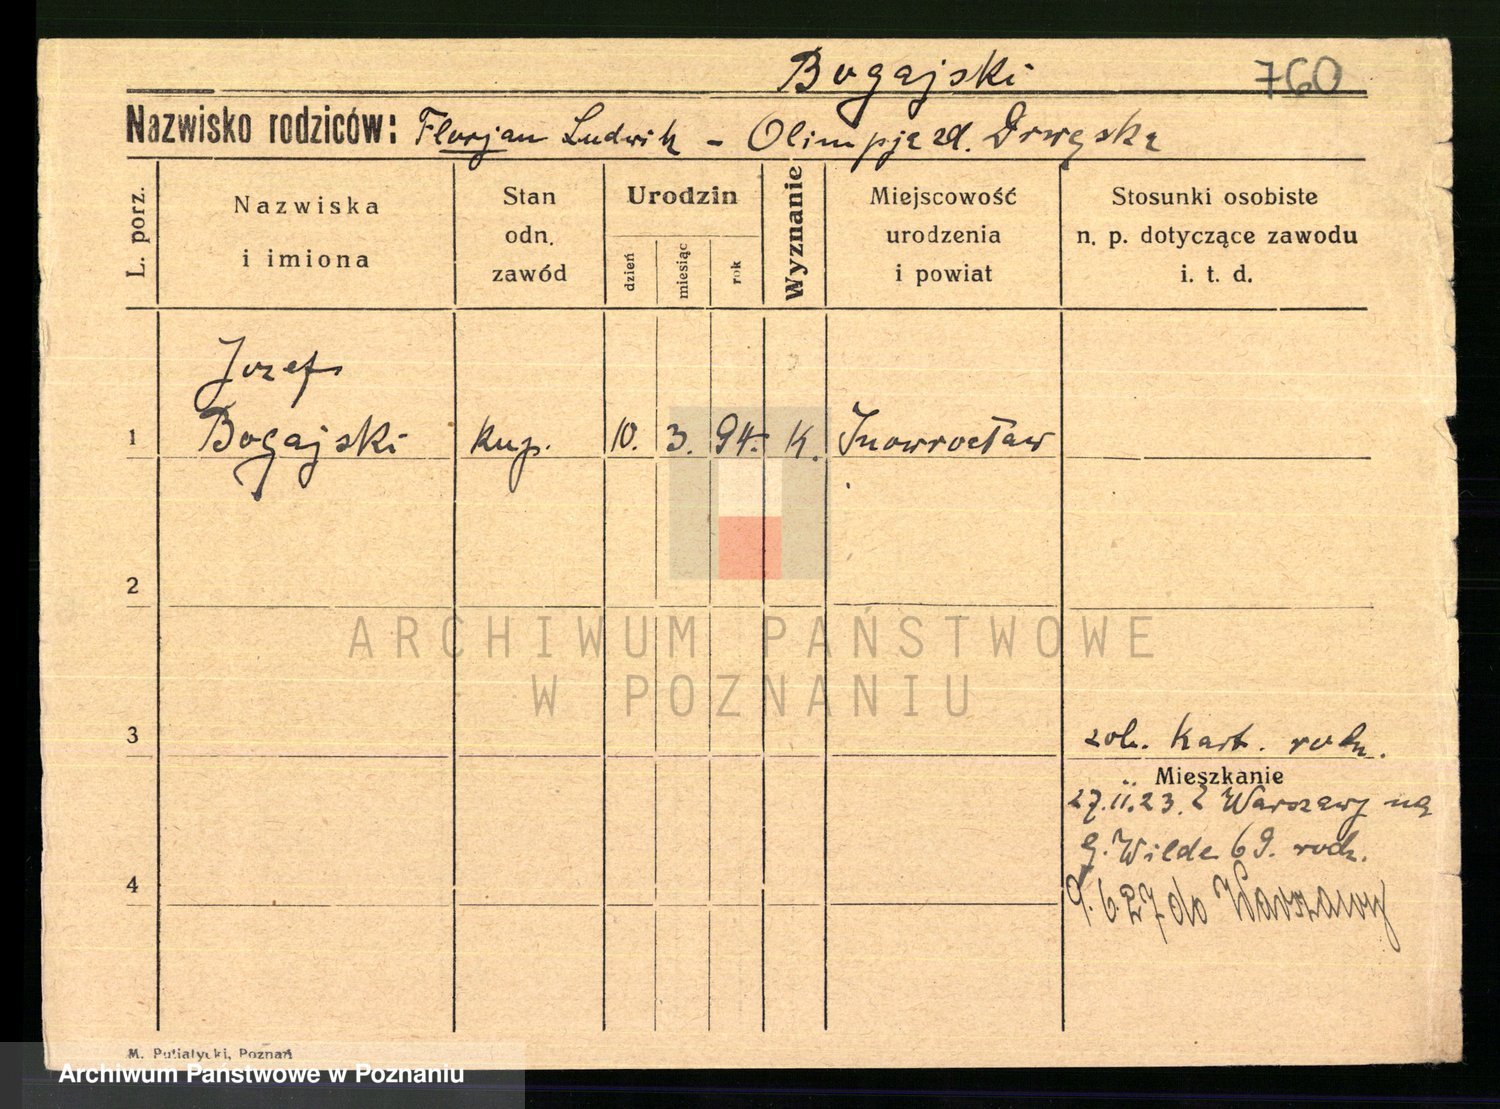 Bogajski 760
Nazwisko rodziców: Florjan Ludwik - Olimpja zd. Drwęska
L. porz.
Nazwiska i imiona
Stan odn. zawód
Urodzin
dzień
miesiąc
rok
Wyznanie
Miejscowość urodzenia i powiat
Stosunki osobiste n. p. dotyczące zawodu i. t. d.
Jozef
1 Bogajski kup. 10. 3. 94. K. Inowrocław
2
ARCHIWUM PAŃSTWOWE
W POZNANIU
3 zob. Kart. rodz.
Mieszkanie
27.II.23. z Warszawy na
G. Wilde 69. rodz.
4
9.6.27 do Warszawy
M. Putiatycki, Poznań
Archiwum Państwowe w Poznaniu